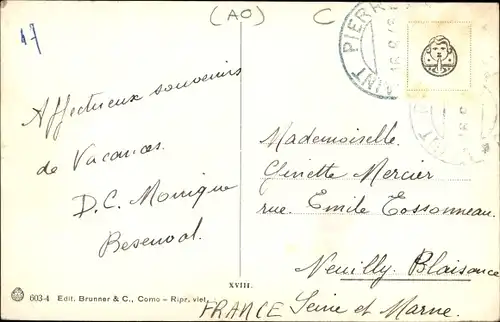 (AO)
C
47
SAINT PIERRE
Affectueux souvenirs
de Vacances.
D.C. Monique
Besenval.
Mademoiselle
Ginette Mercier
rue. Emile Cossonneau.
Neuilly. Plaisance
Seine et Marne.
FRANCE
XVIII.
603-4 Edit. Brunner & C., Como – Ripr. viet.